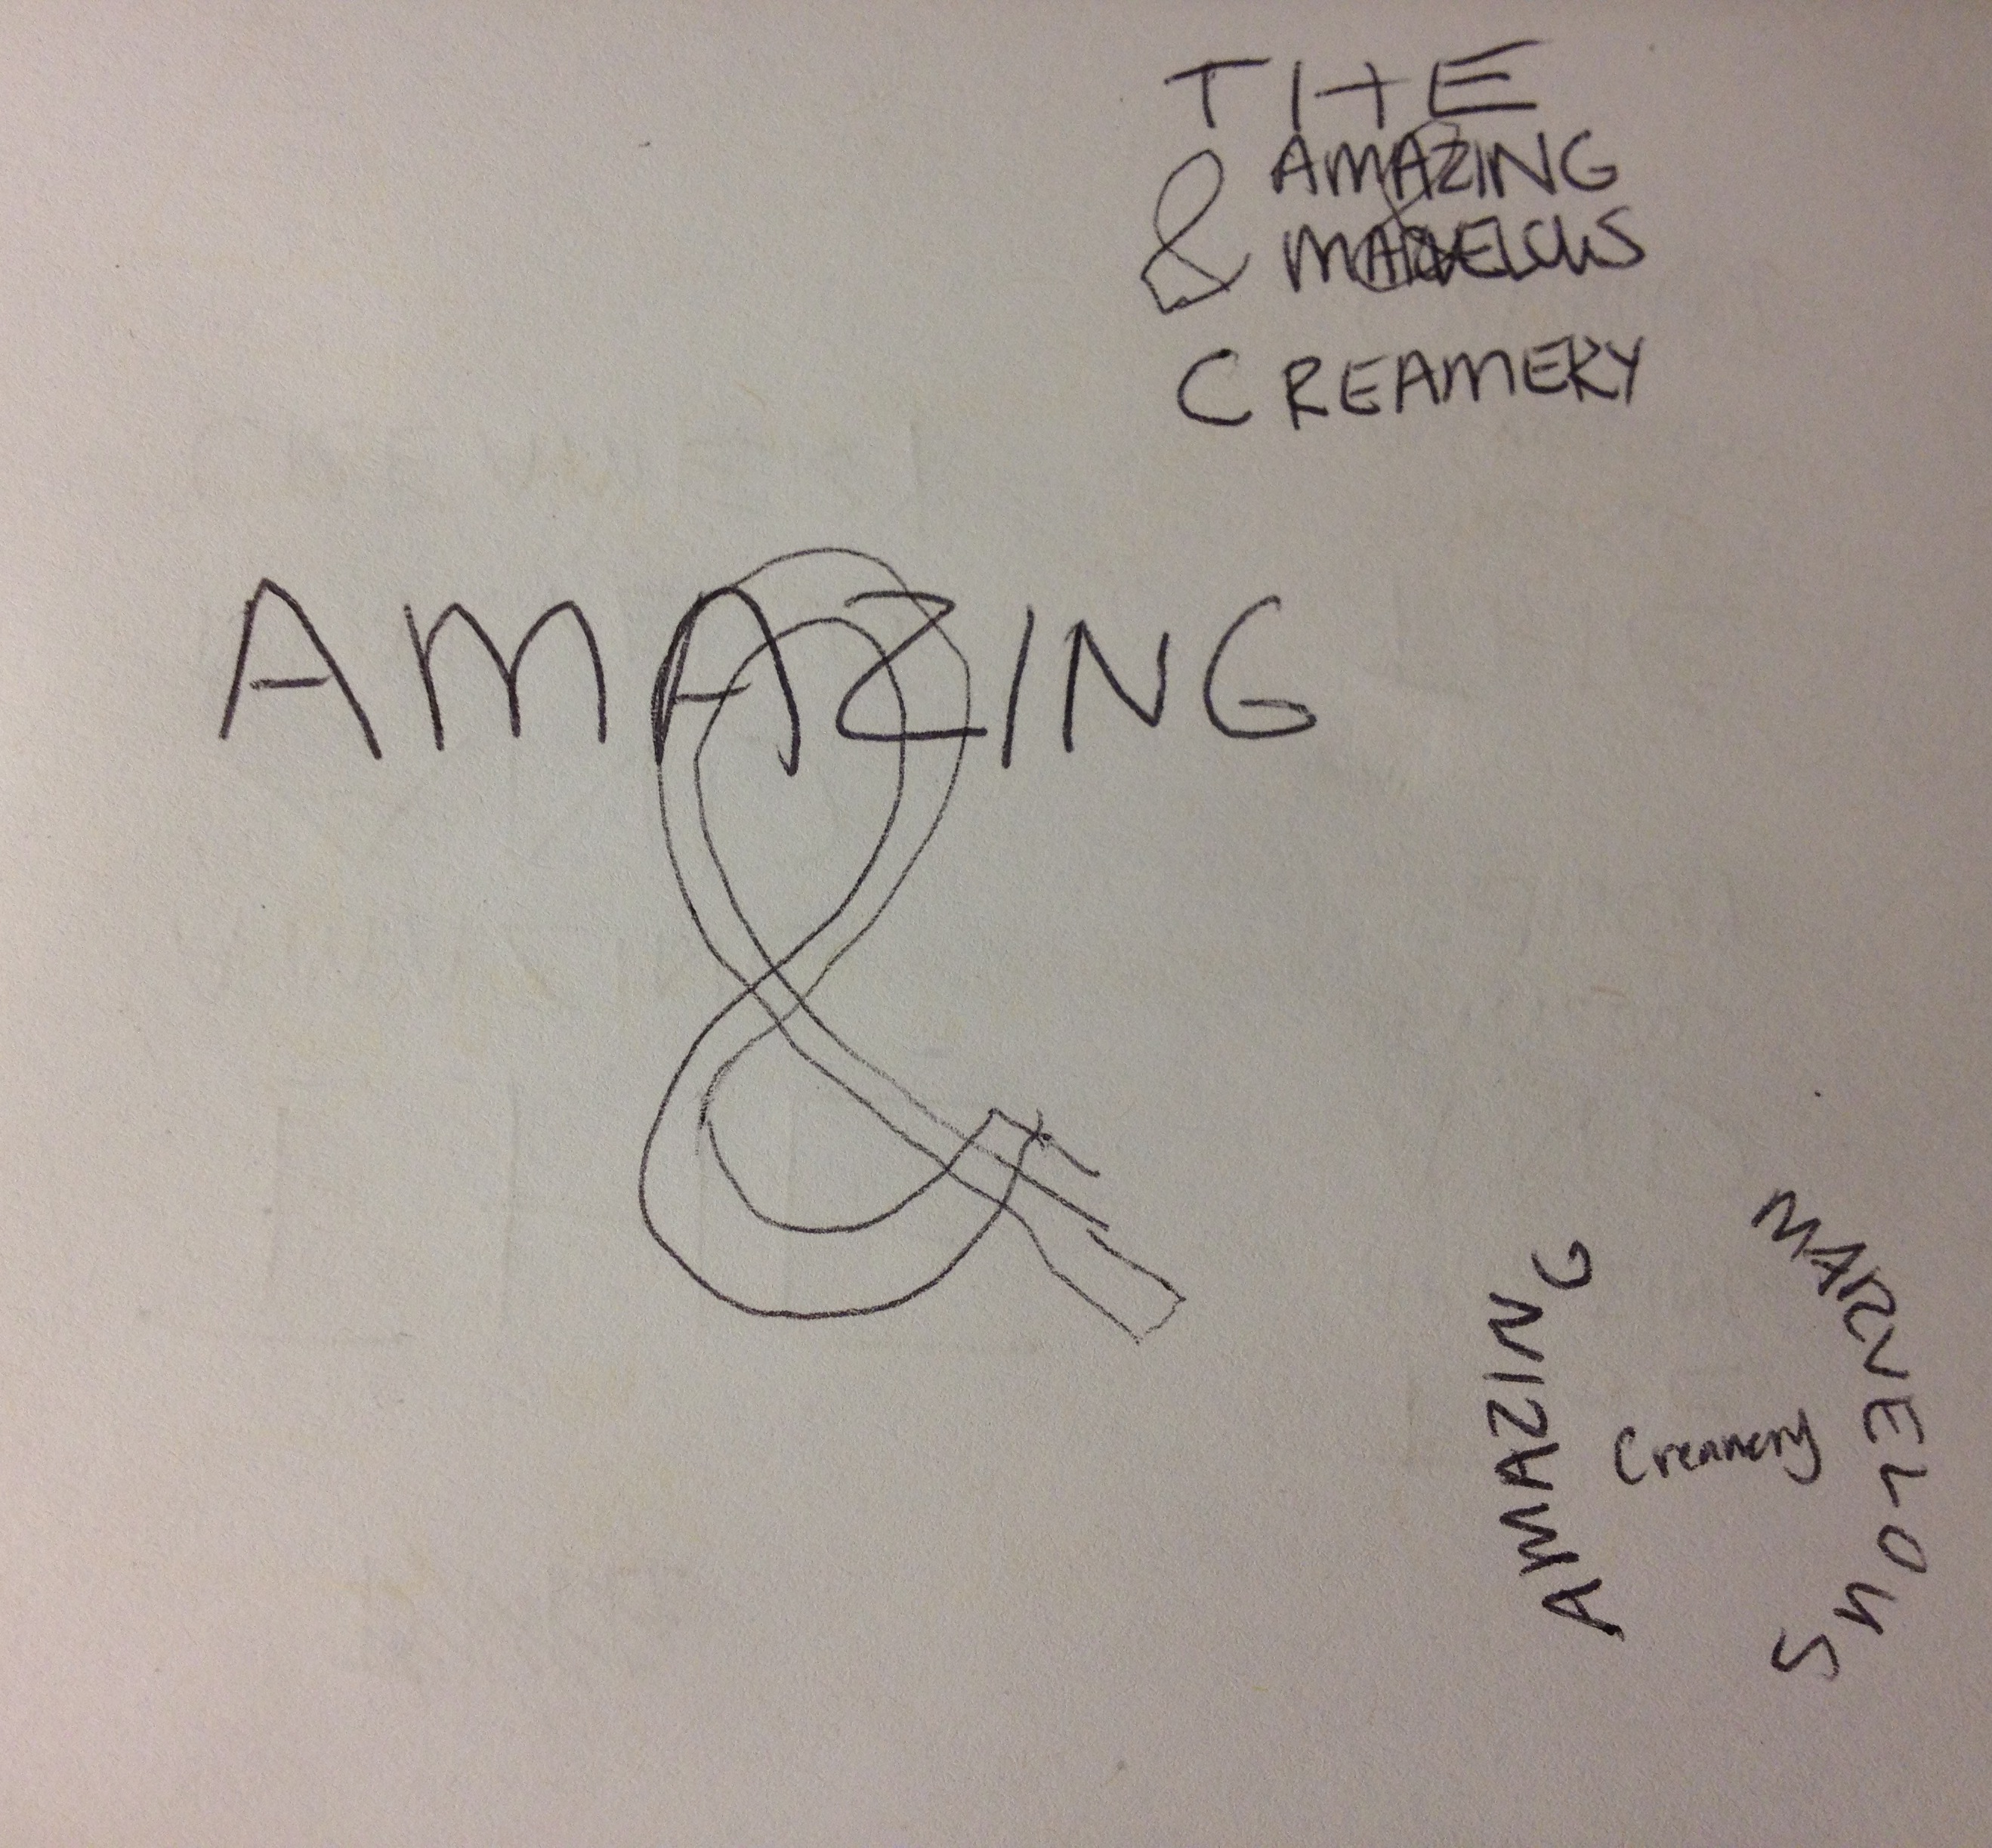 THE
AMAZING
& MARVELOUS
CREAMERY
AMAZING
&
AMAZING
Creamery
MARVELOUS